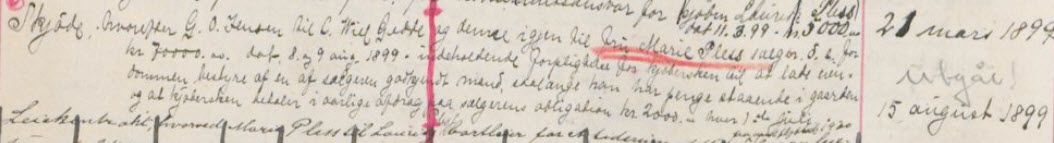 ansvar for kjøben Laurits Pless
dat 11.3.99 - kr 5000.00 21 mars 1899
Skjøde, hvorefter G. O. Jensen til C. Wiel Gedde og denne igjen til Fru Marie Pless sælger d. e. for
kr 70000.00. dat. 8 og 9 aug. 1899 - indeholdende forpligtelse for kjøbersken til at lade eien- utgår!
dommen bestyre af en af sælgeren godkjendt mand, saalænge han har penge staaende i gaarden
og at kjøbersken betaler i aarlige afdrag paa sælgerens obligation kr. 2000.00 hver 1ste juli 15 august 1899
Leiekontrakt, hvorved Marie Pless til Laurits for et tidsrum